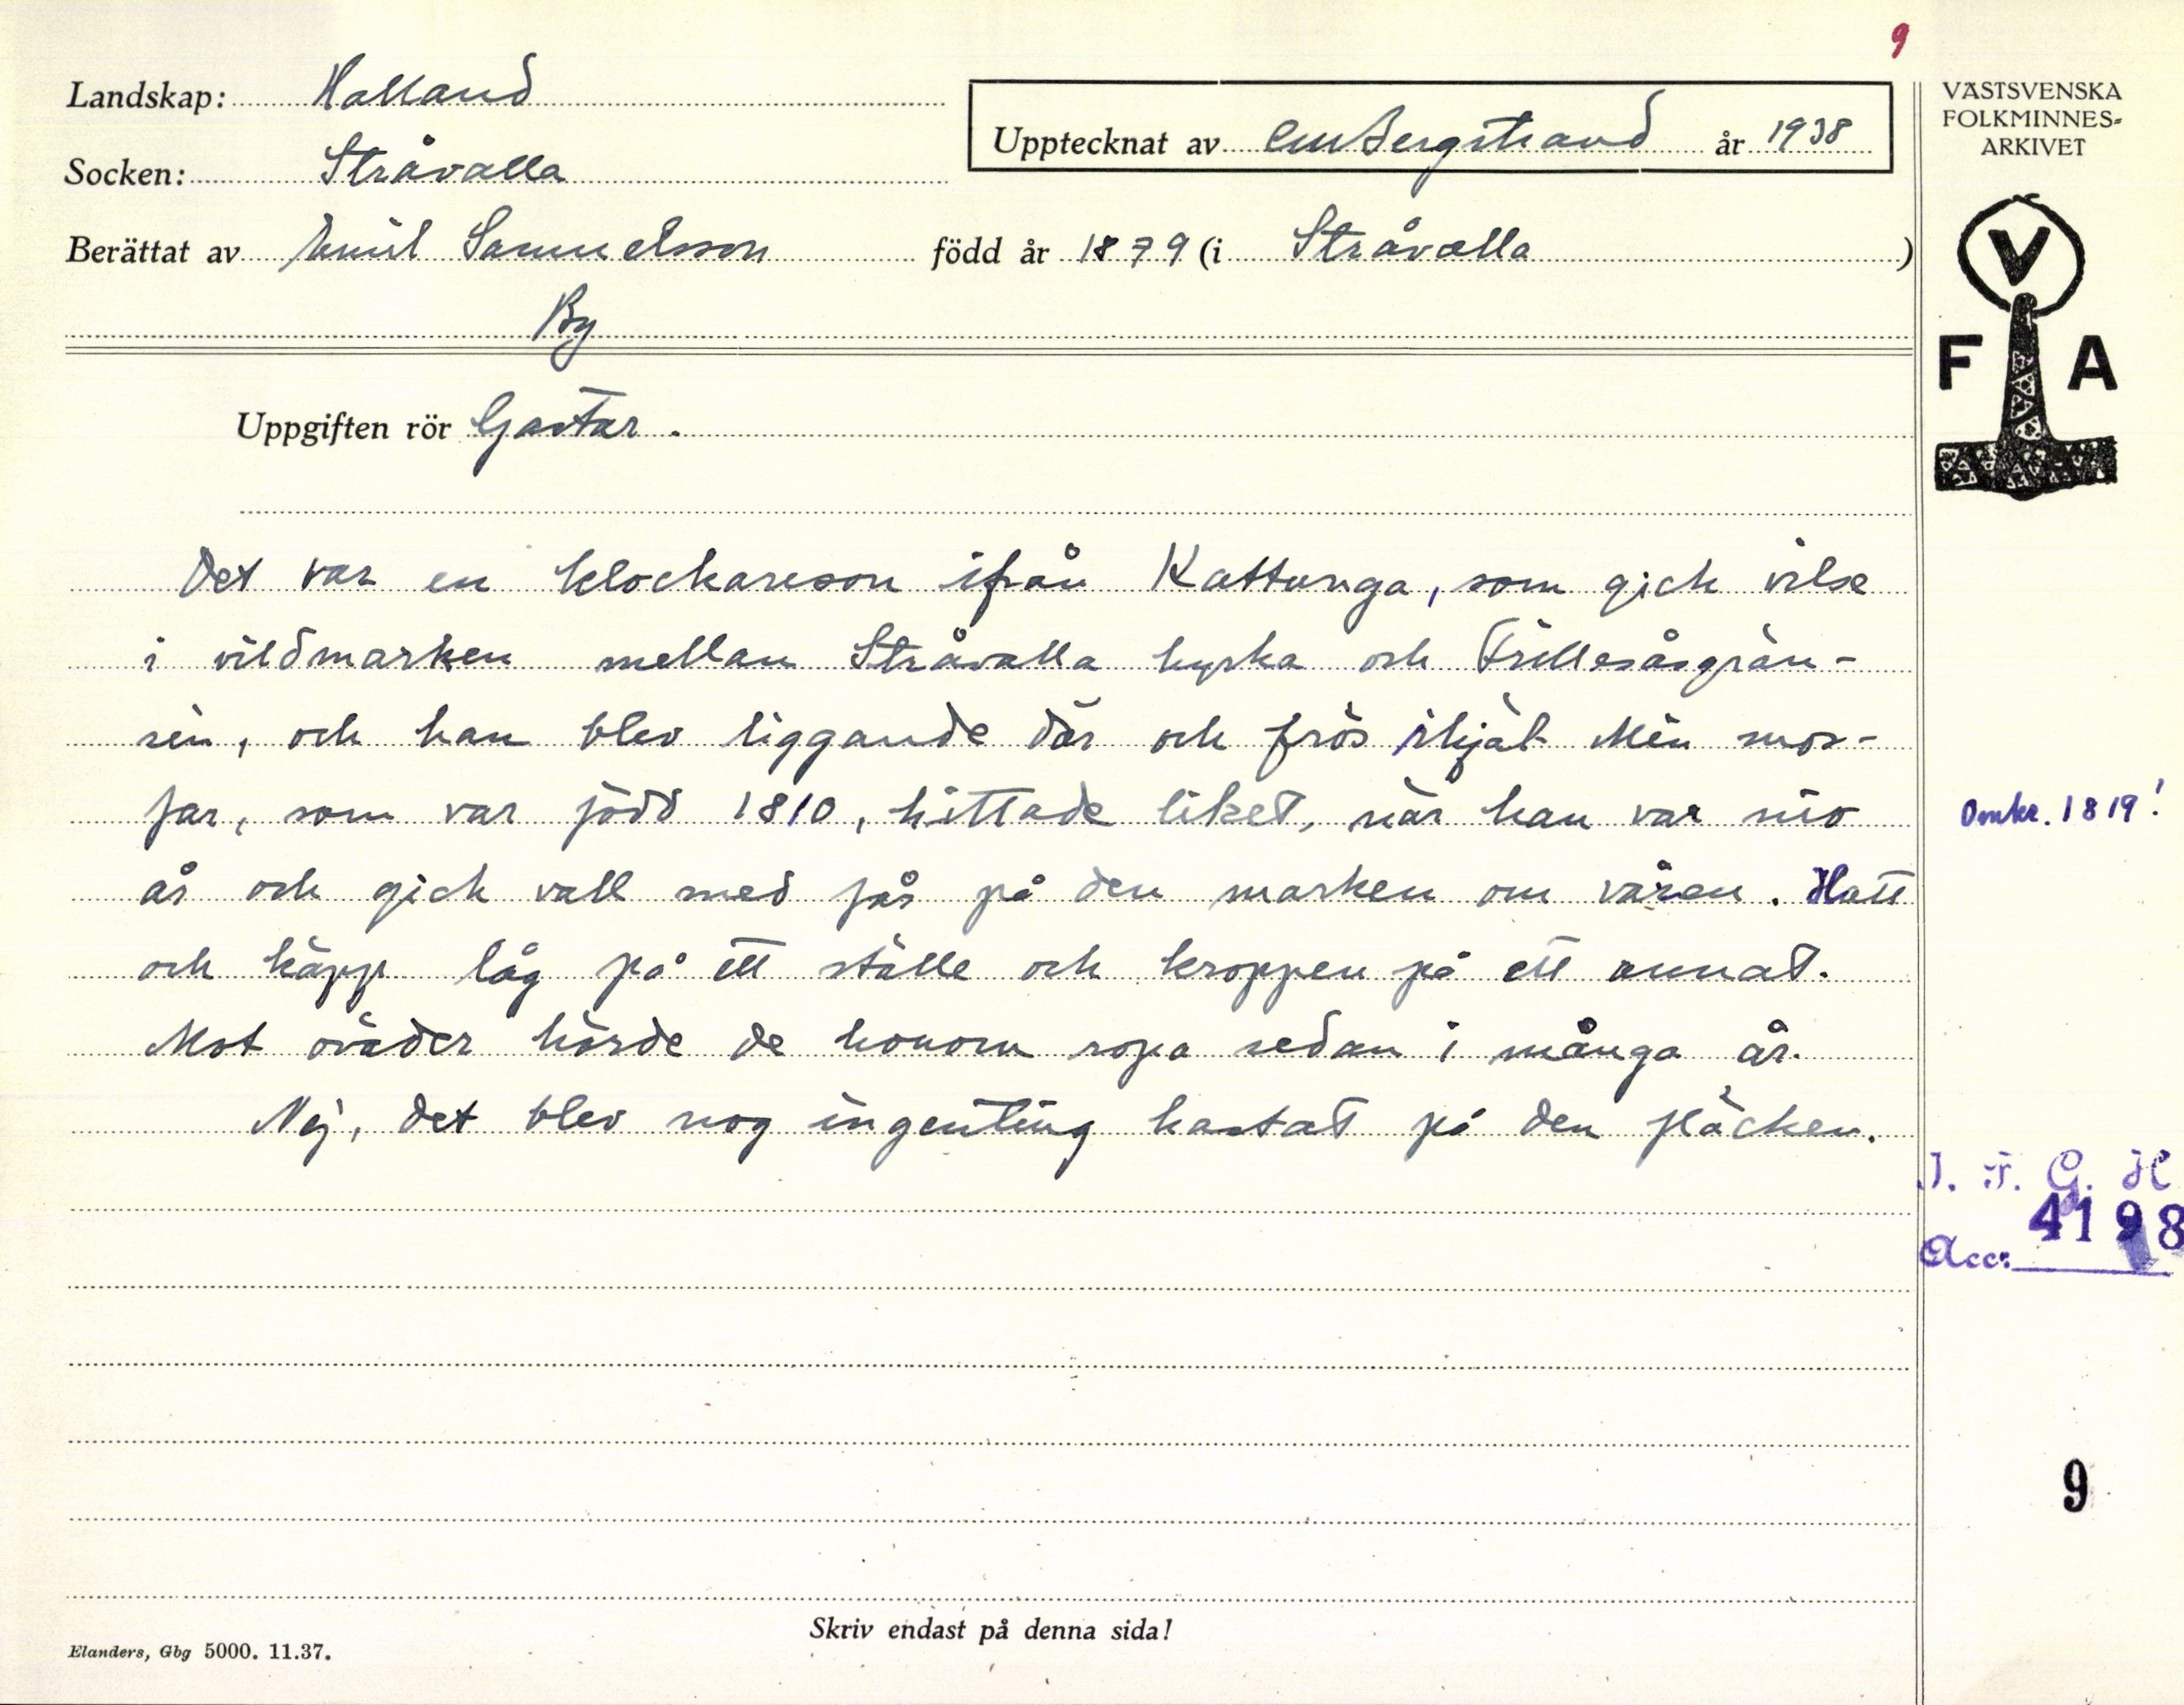 9
Landskap: Halland
VÄSTSVENSKA
FOLKMINNES-
ARKIVET
Upptecknat av CMBergstrand år 1938
Socken: Stråvalla
Berättat av Emil Samuelsson född år 1879 (i Stråvalla )
By
V
F A
Uppgiften rör Gastar.
Det var en klockareson ifrån Kattunga, som gick vilse
i vildmarken mellan Stråvalla kyrka och Frillesåsgrän-
sen, och han blev liggande där och frös ihjäl. Min mor-
far, som var född 1810, hittade liket, när han var nio
Omkr. 1819!
år och gick vall med får på den marken om våren. Hatt
och käpp låg på ett ställe och kroppen på ett annat.
Mot oväder hörde de honom ropa sedan i många år.
Nej, det blev nog ingenting kastat på den fläcken.
I. F. G. H
4198
Acc:
9
Skriv endast på denna sida!
Elanders, Gbg 5000. 11.37.